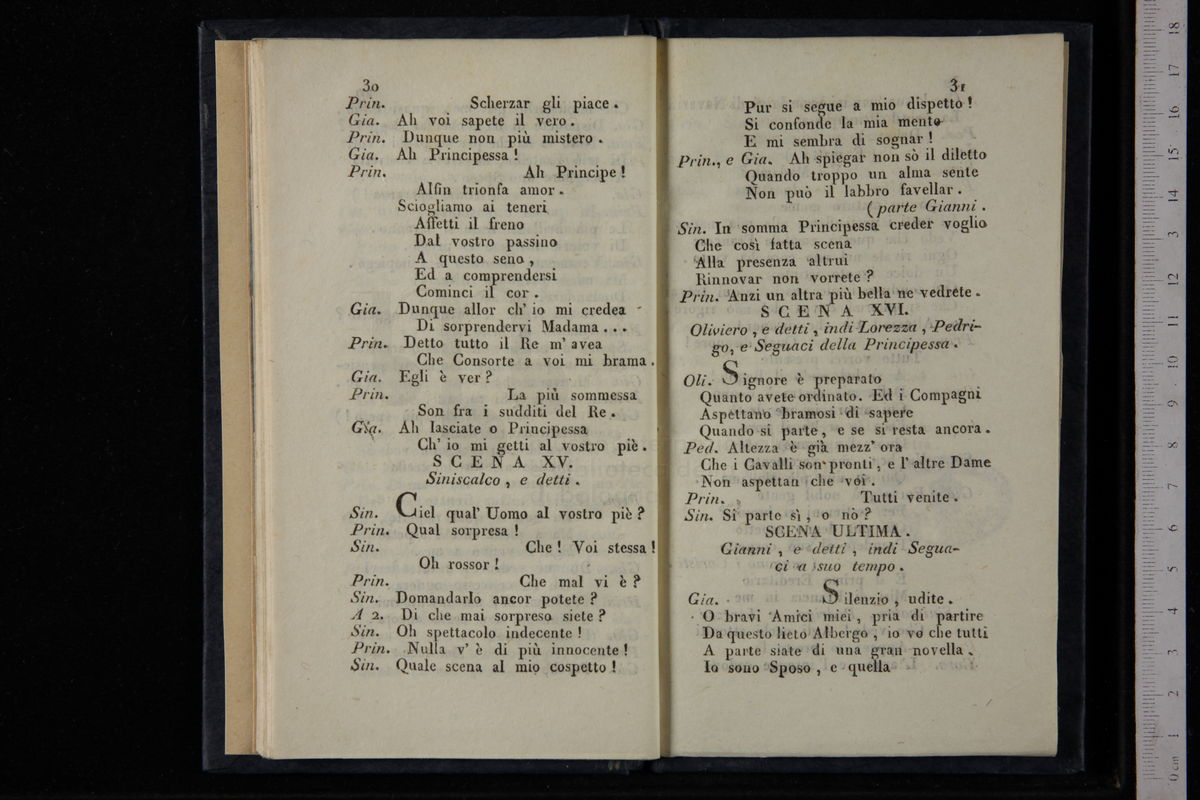 30
Prin. Scherzar gli piace.
Gia. Ah voi sapete il vero.
Prin. Dunque non più mistero.
Gia. Ah Principessa!
Prin. Ah Principe!
Alfin trionfa amor.
Sciogliamo ai teneri
Affetti il freno
Dal vostro passino
A questo seno,
Ed a comprendersi
Cominci il cor.
Gia. Dunque allor ch' io mi credea
Di sorprendervi Madama...
Prin. Detto tutto il Re m' avea
Che Consorte a voi mi brama.
Gia. Egli è ver?
Prin. La più sommessa
Son fra i sudditi del Re.
Gia. Ah lasciate o Principessa
Ch' io mi getti al vostro piè.
SCENA XV.
Siniscalco, e detti.
Sin. Ciel qual' Uomo al vostro piè?
Prin. Qual sorpresa!
Sin. Che! Voi stessa!
Oh rossor!
Prin. Che mal vi è?
Sin. Domandarlo ancor potete?
A 2. Di che mai sorpreso siete?
Sin. Oh spettacolo indecente!
Prin. Nulla v' è di più innocente!
Sin. Quale scena al mio cospetto!
31
Pur si segue a mio dispetto!
Si confonde la mia mente
E mi sembra di sognar!
Prin., e Gia. Ah spiegar non sò il diletto
Quando troppo un alma sente
Non può il labbro favellar.
(parte Gianni.
Sin. In somma Principessa creder voglio
Che così fatta scena
Alla presenza altrui
Rinnovar non vorrete?
Prin. Anzi un altra più bella ne vedrete.
SCENA XVI.
Oliviero, e detti, indi Lorezza, Pedri-
go, e Seguaci della Principessa.
Oli. Signore è preparato
Quanto avete ordinato. Ed i Compagni
Aspettano bramosi di sapere
Quando si parte, e se si resta ancora.
Ped. Altezza è già mezz' ora
Che i Cavalli son pronti, e l' altre Dame
Non aspettan che voi.
Prin. Tutti venite.
Sin. Si parte sì, o nò?
SCENA ULTIMA.
Gianni, e detti, indi Segua-
ci a suo tempo.
Gia. Silenzio, udite.
O bravi Amici miei, pria di partire
Da questo lieto Albergo, io vo che tutti
A parte siate di una gran novella.
Io sono Sposo, e quella
0 cm 1 2 3 4 5 6 7 8 9 10 11 12 13 14 15 16 17 18